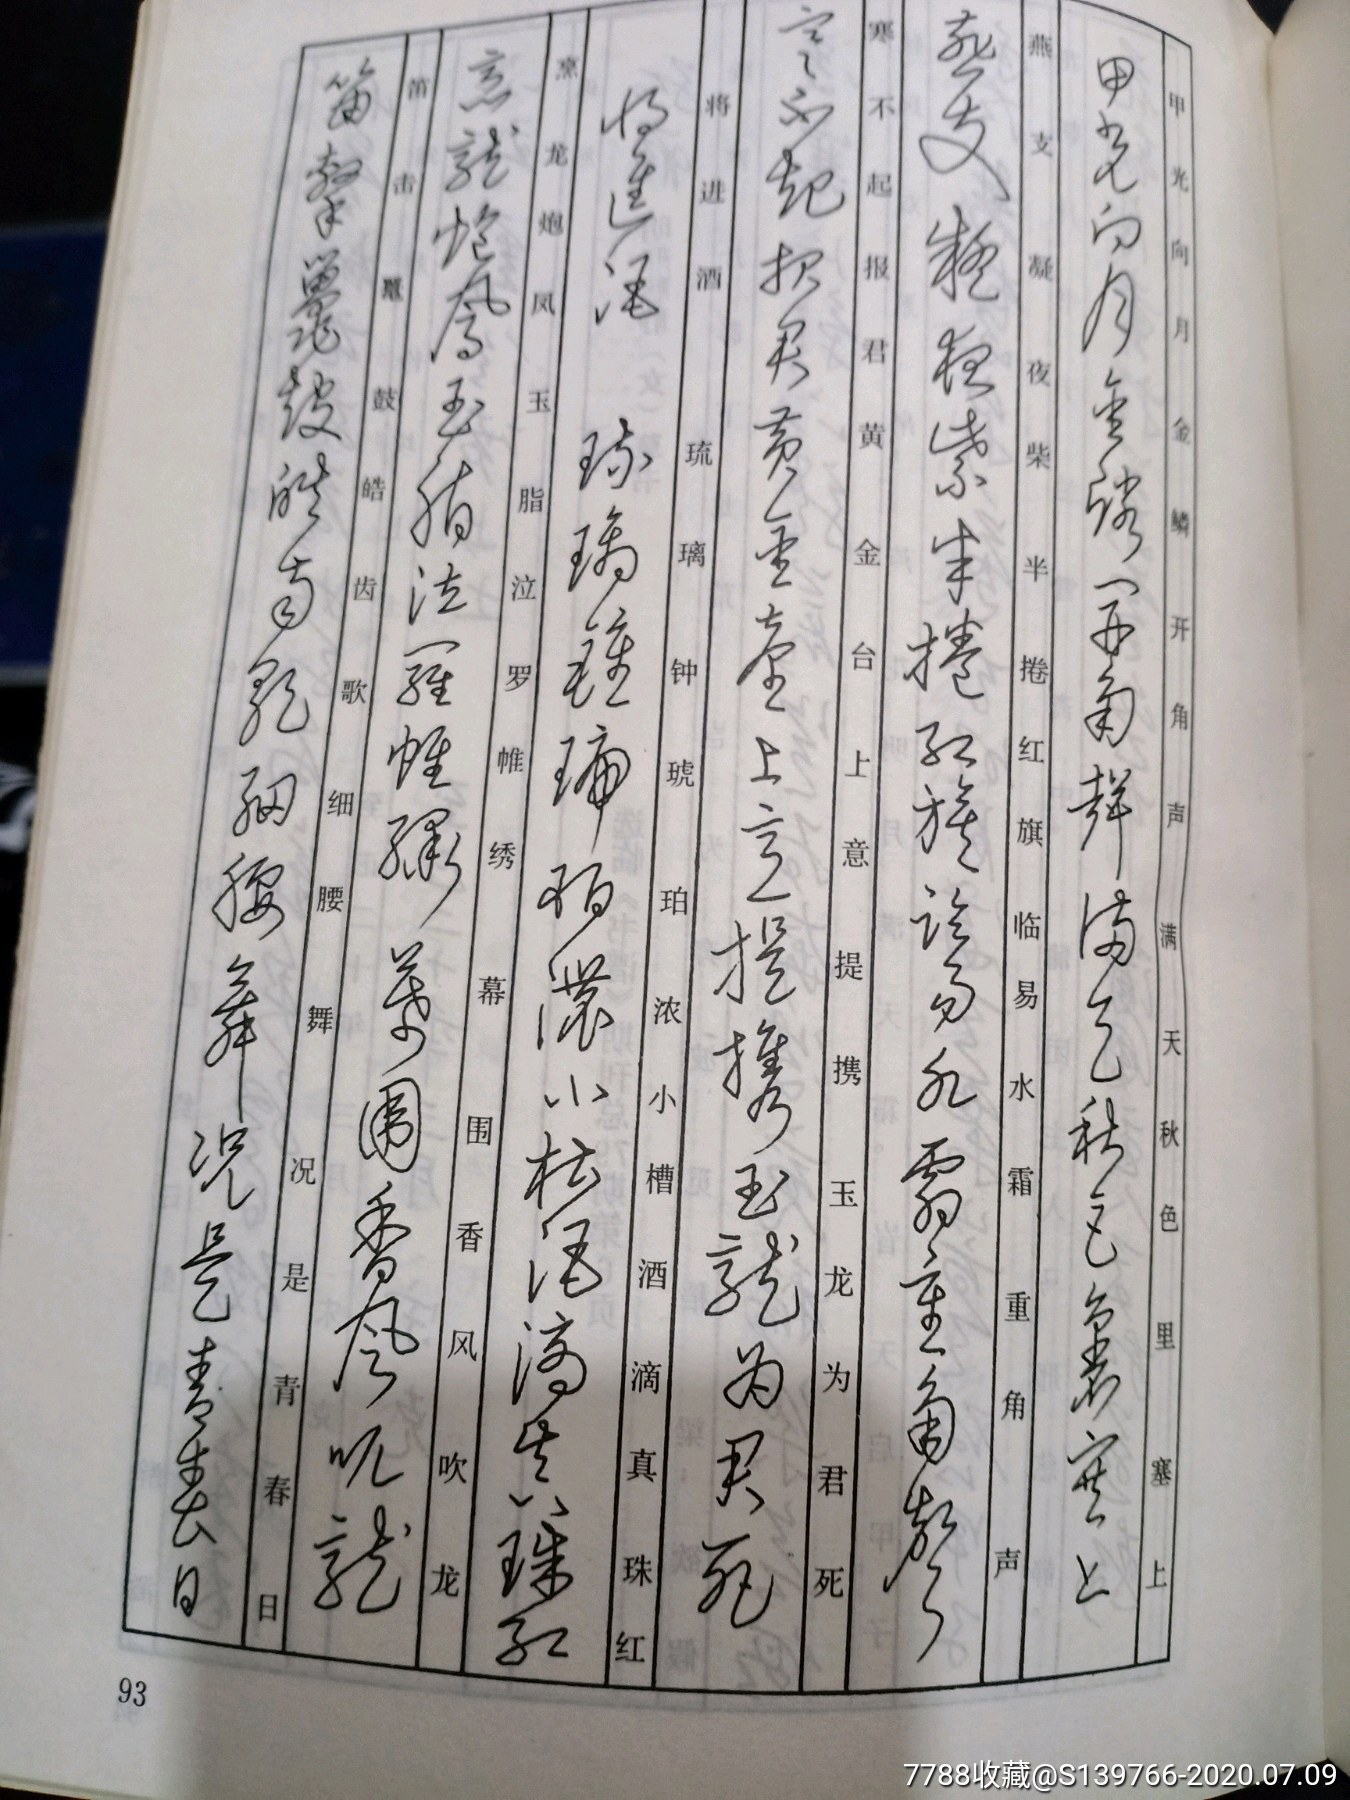 甲光向月金鳞开角声满天秋色里塞上
甲光向月金鱗開角聲滿天秋色裏塞上
燕支凝夜柴半捲红旗临易水霜重角声
燕支凝夜紫半捲紅旗臨易水霜重角聲
寒不起报君黄金台上意提携玉龙为君死
寒不起報君黃金臺上意提攜玉龍为君死
将进酒 琉璃钟琥珀浓小槽酒滴真珠红
將進酒 琉璃鍾琥珀濃小槽酒滴真珠紅
烹龙炮凤玉脂泣罗帷绣幕围香风吹龙
烹龍炮鳳玉脂泣羅帷繡幕圍香風吹龍
笛击鼍鼓皓齿歌细腰舞况是青春日
笛擊鼉鼓皓齒歌細腰舞況是青春日
93
7788收藏@S139766-2020.07.09